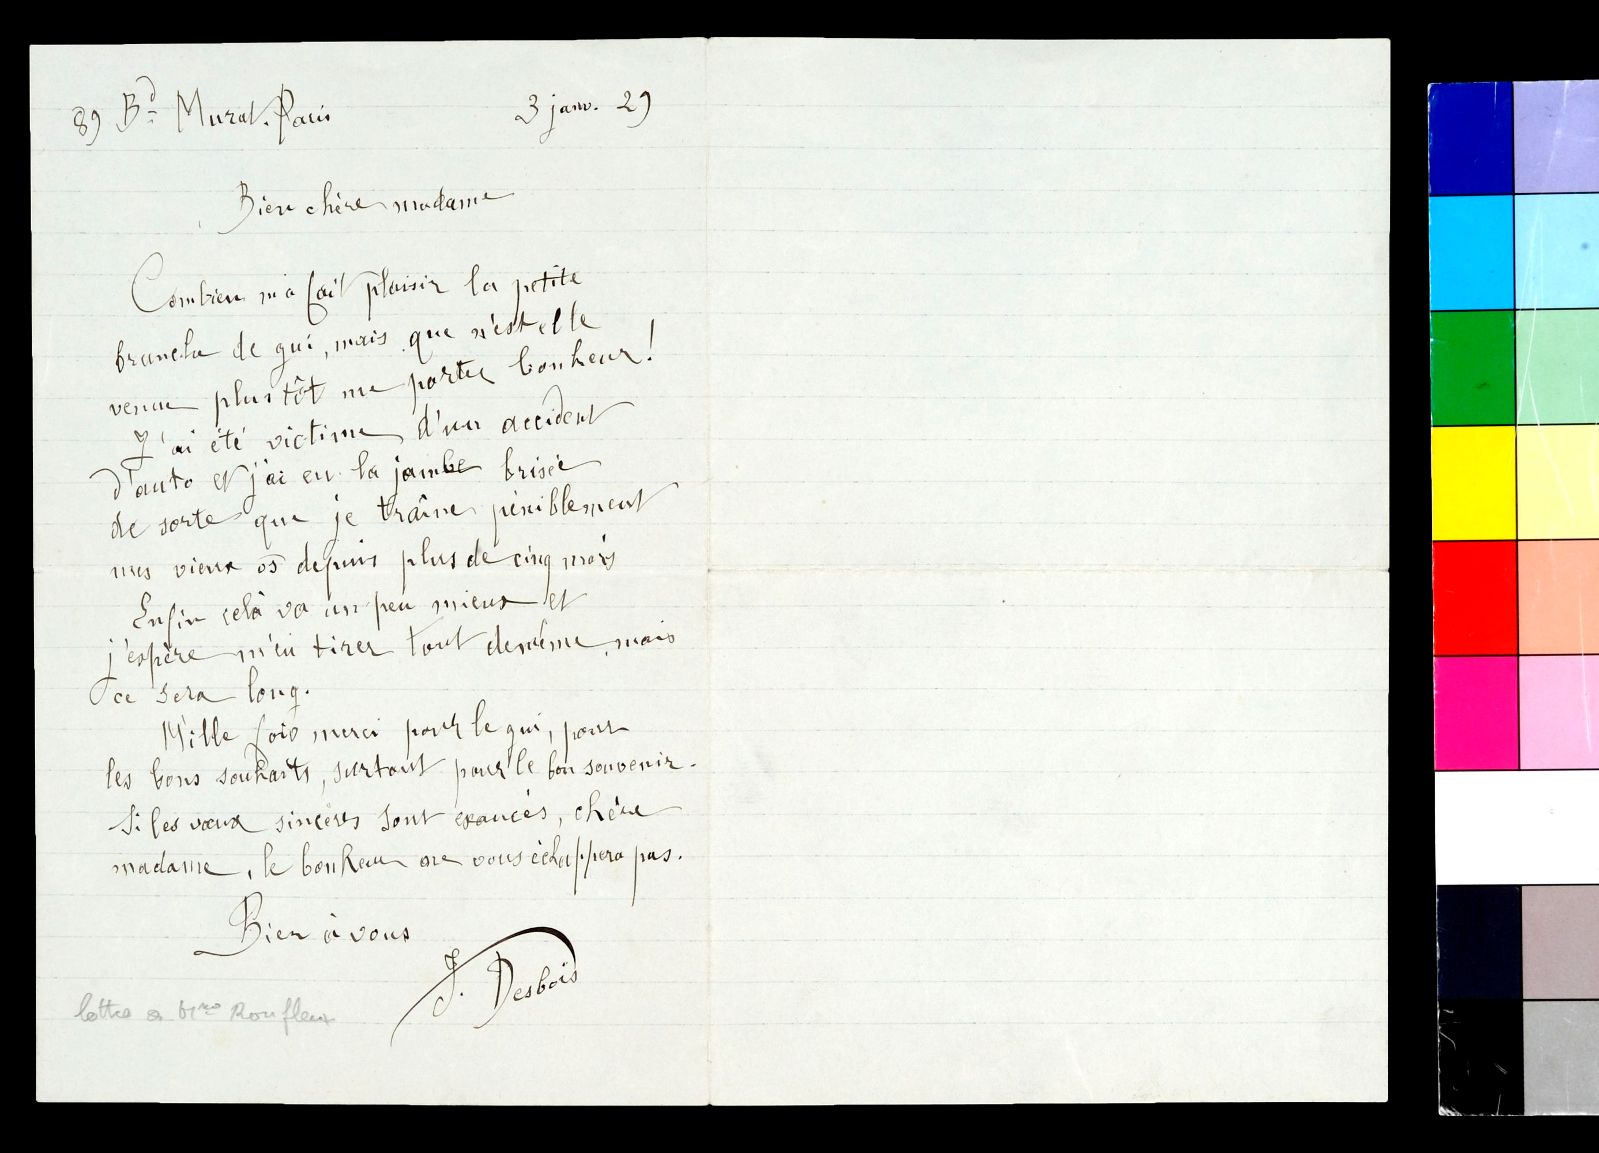 89 Bd Murat. Paris 3 janv. 29
Bien chère madame
Combien m'a fait plaisir la petite
branche de gui, mais que n'est elle
venue plus tôt me porter bonheur!
J'ai été victime d'un accident
d'auto et j'ai eu la jambe brisée
de sorte que je traîne péniblement
mes vieux os depuis plus de cinq mois
Enfin celà va un peu mieux et
j'espère m'en tirer tout de même, mais
ce sera long.
Mille fois merci pour le gui, pour
les bons souhaits, surtout pour le bon souvenir.
Si les vœux sincères sont exaucés, chère
madame, le bonheur ne vous échappera pas.
Bien à vous
J. Desbois
lettre a Mme